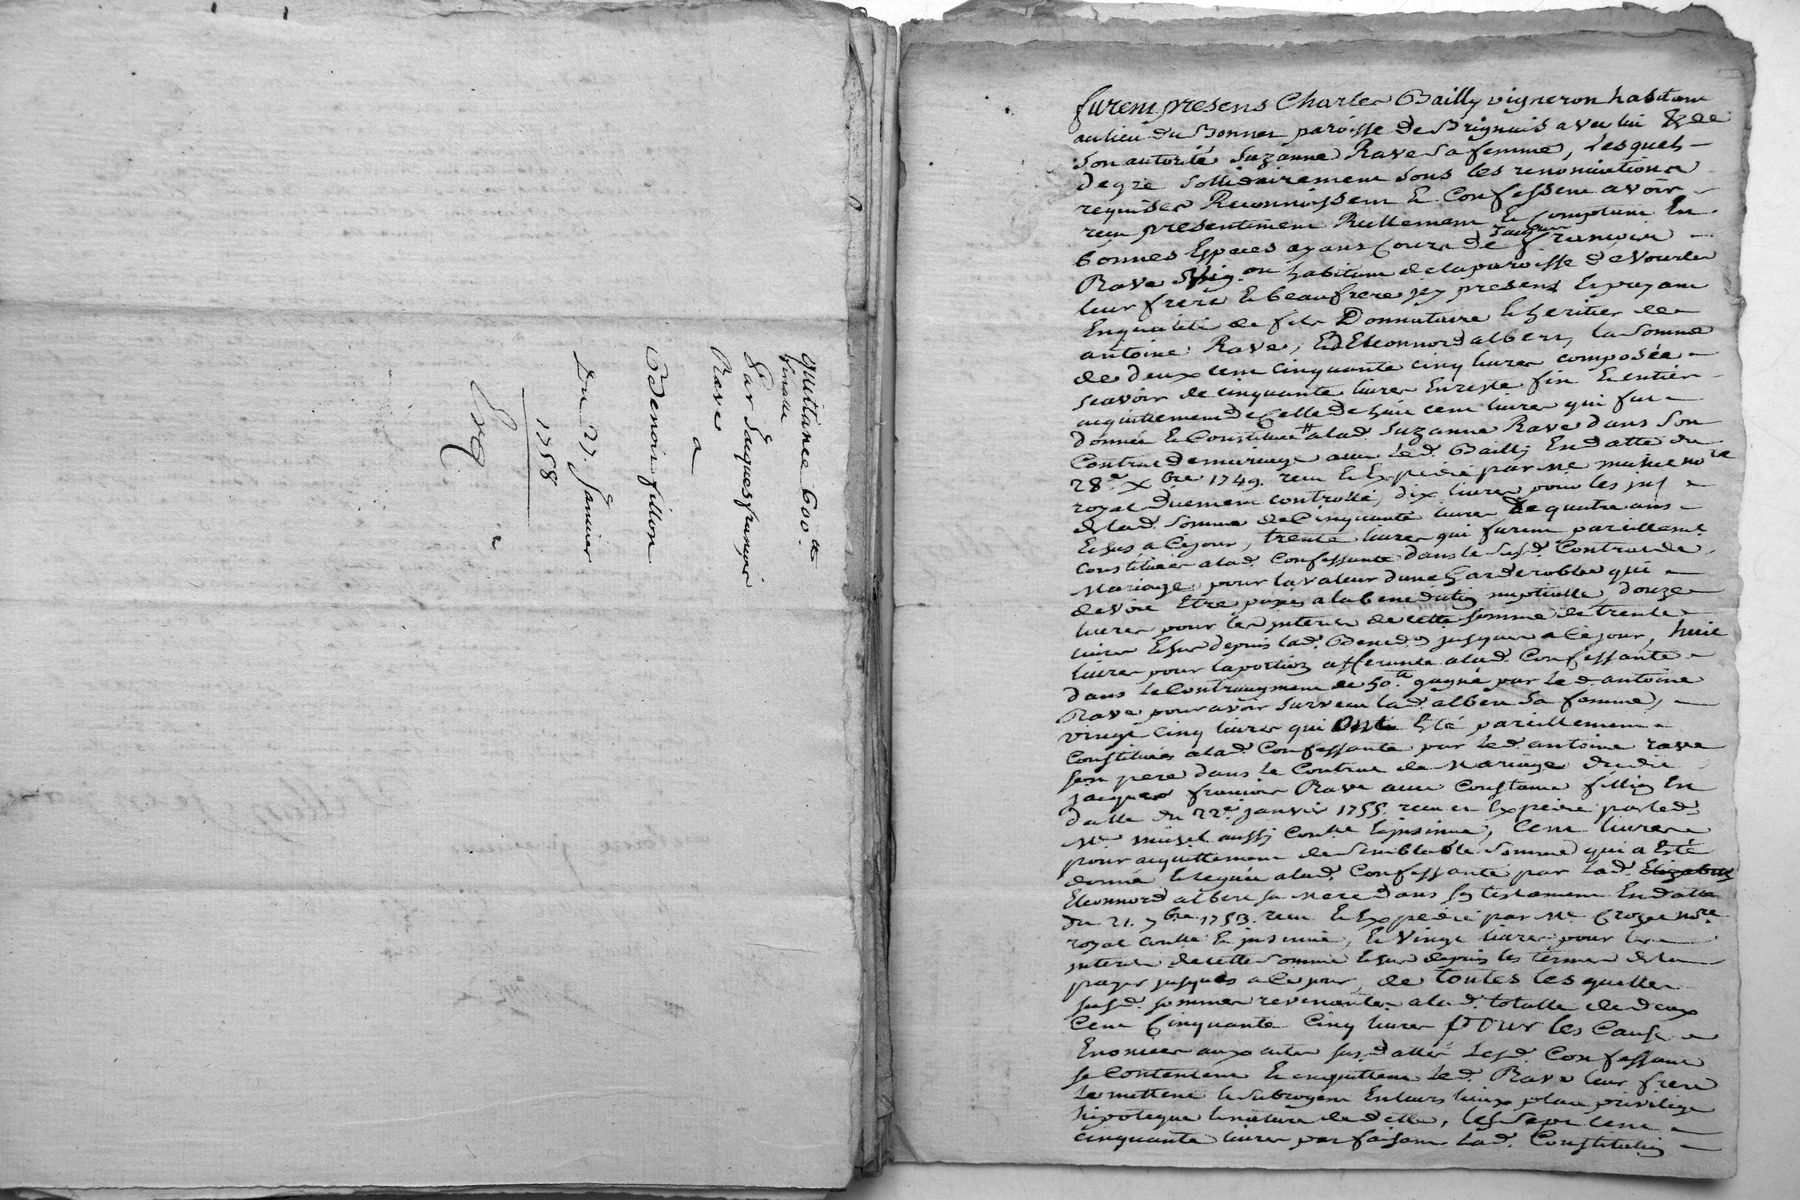 quittance 600.tt
finalle
Par Jaques françois
Rave
a
Benoir fillon
Du 27. Janvier
1758
furent presens Charles Bailly vigneron habitant
au lieu du Bonnet paroisse de Brignais avec lui & de
son autorité Suzanne Rave sa femme, Lesquels
de gré sollidairement sous les renonciations
requises Reconnoissent & Confessent avoir
reçu presentement Reellement & Comptant En
bonnes Espaces ayans Cours de Jaques françois
Rave Vig.on habitant de la paroisse de Vourles
leur frere & beaufrere jcy present Et payant
En qualité de fils Donnataire & heritier de
antoine Rave, Et d'Eleonnord albert, la somme
de deux cent cinquante cinq livres composée
scavoir de cinquante livres En reste fin & entier
acquittement de Celle de huit cent livres qui fut
donnée & Constituée a lad. Suzanne Rave dans Son
Contrat de mariage avec Led. Bailly En datte du
28.e Xbre 1749. recu & Expedié par Me no.re
royal duement controllé, dix livres pour les jnt
de lad. somme de Cinquante livres de quatre ans
Echus a Ce jour, trente livres qui furent pareillemt
constituées a lad. Confessante dans le susd. Contrat de
Mariage pour la valeur d'une garderobbe qui
devoit Etre payée a la benediction nuptialle, douze
livres pour les jnterets de cette somme de trente
livres Echus depuis lad. Bened.on jusques a Ce jour, huit
livres pour la portion afferante a lad. Confessante
dans Le Contraugment de 50.tt gagné par Led. antoine
Rave pour avoir survecu lad. albert Sa femme,
vingt cinq livres qui ont Eté pareillement
Constituées a lad. Confessante par led. antoine rave
son pere dans le Contrat de Mariage dudit
jacques françois Rave avec Constance fillion En
datte du 22.e janvier 1755. recu et Expedié par led.
Me aussi Contlé & jnsinué, Cent livres
pour acquittement de Semblable Somme qui a Eté
donnée & leguée a lad. Confessante par Lad. Elizabeth
Eleonnord albert sa Mere dans son testament En datte
du 21. 7bre 1753. recu & Expedié par Me no.re
royal Contlé & jnsinué, & Vingt livres pour les
jnterets de cette Somme Echus depuis les termes de la
payer jusques a Ce jour, de toutes les quelles
susd. sommes revenantes a lad. totalle de deux
Cent Cinquante Cinq livres pour les Causes
Enoncées aux actes sus dattés Lesd. Confessants
se Contentent & en quittent led. Rave leur frere
Le mettent & Subrogent En leurs lieux place privilege
hipoteque & nature de dette, Cent
cinquante livres par faisant Lad. Constitution